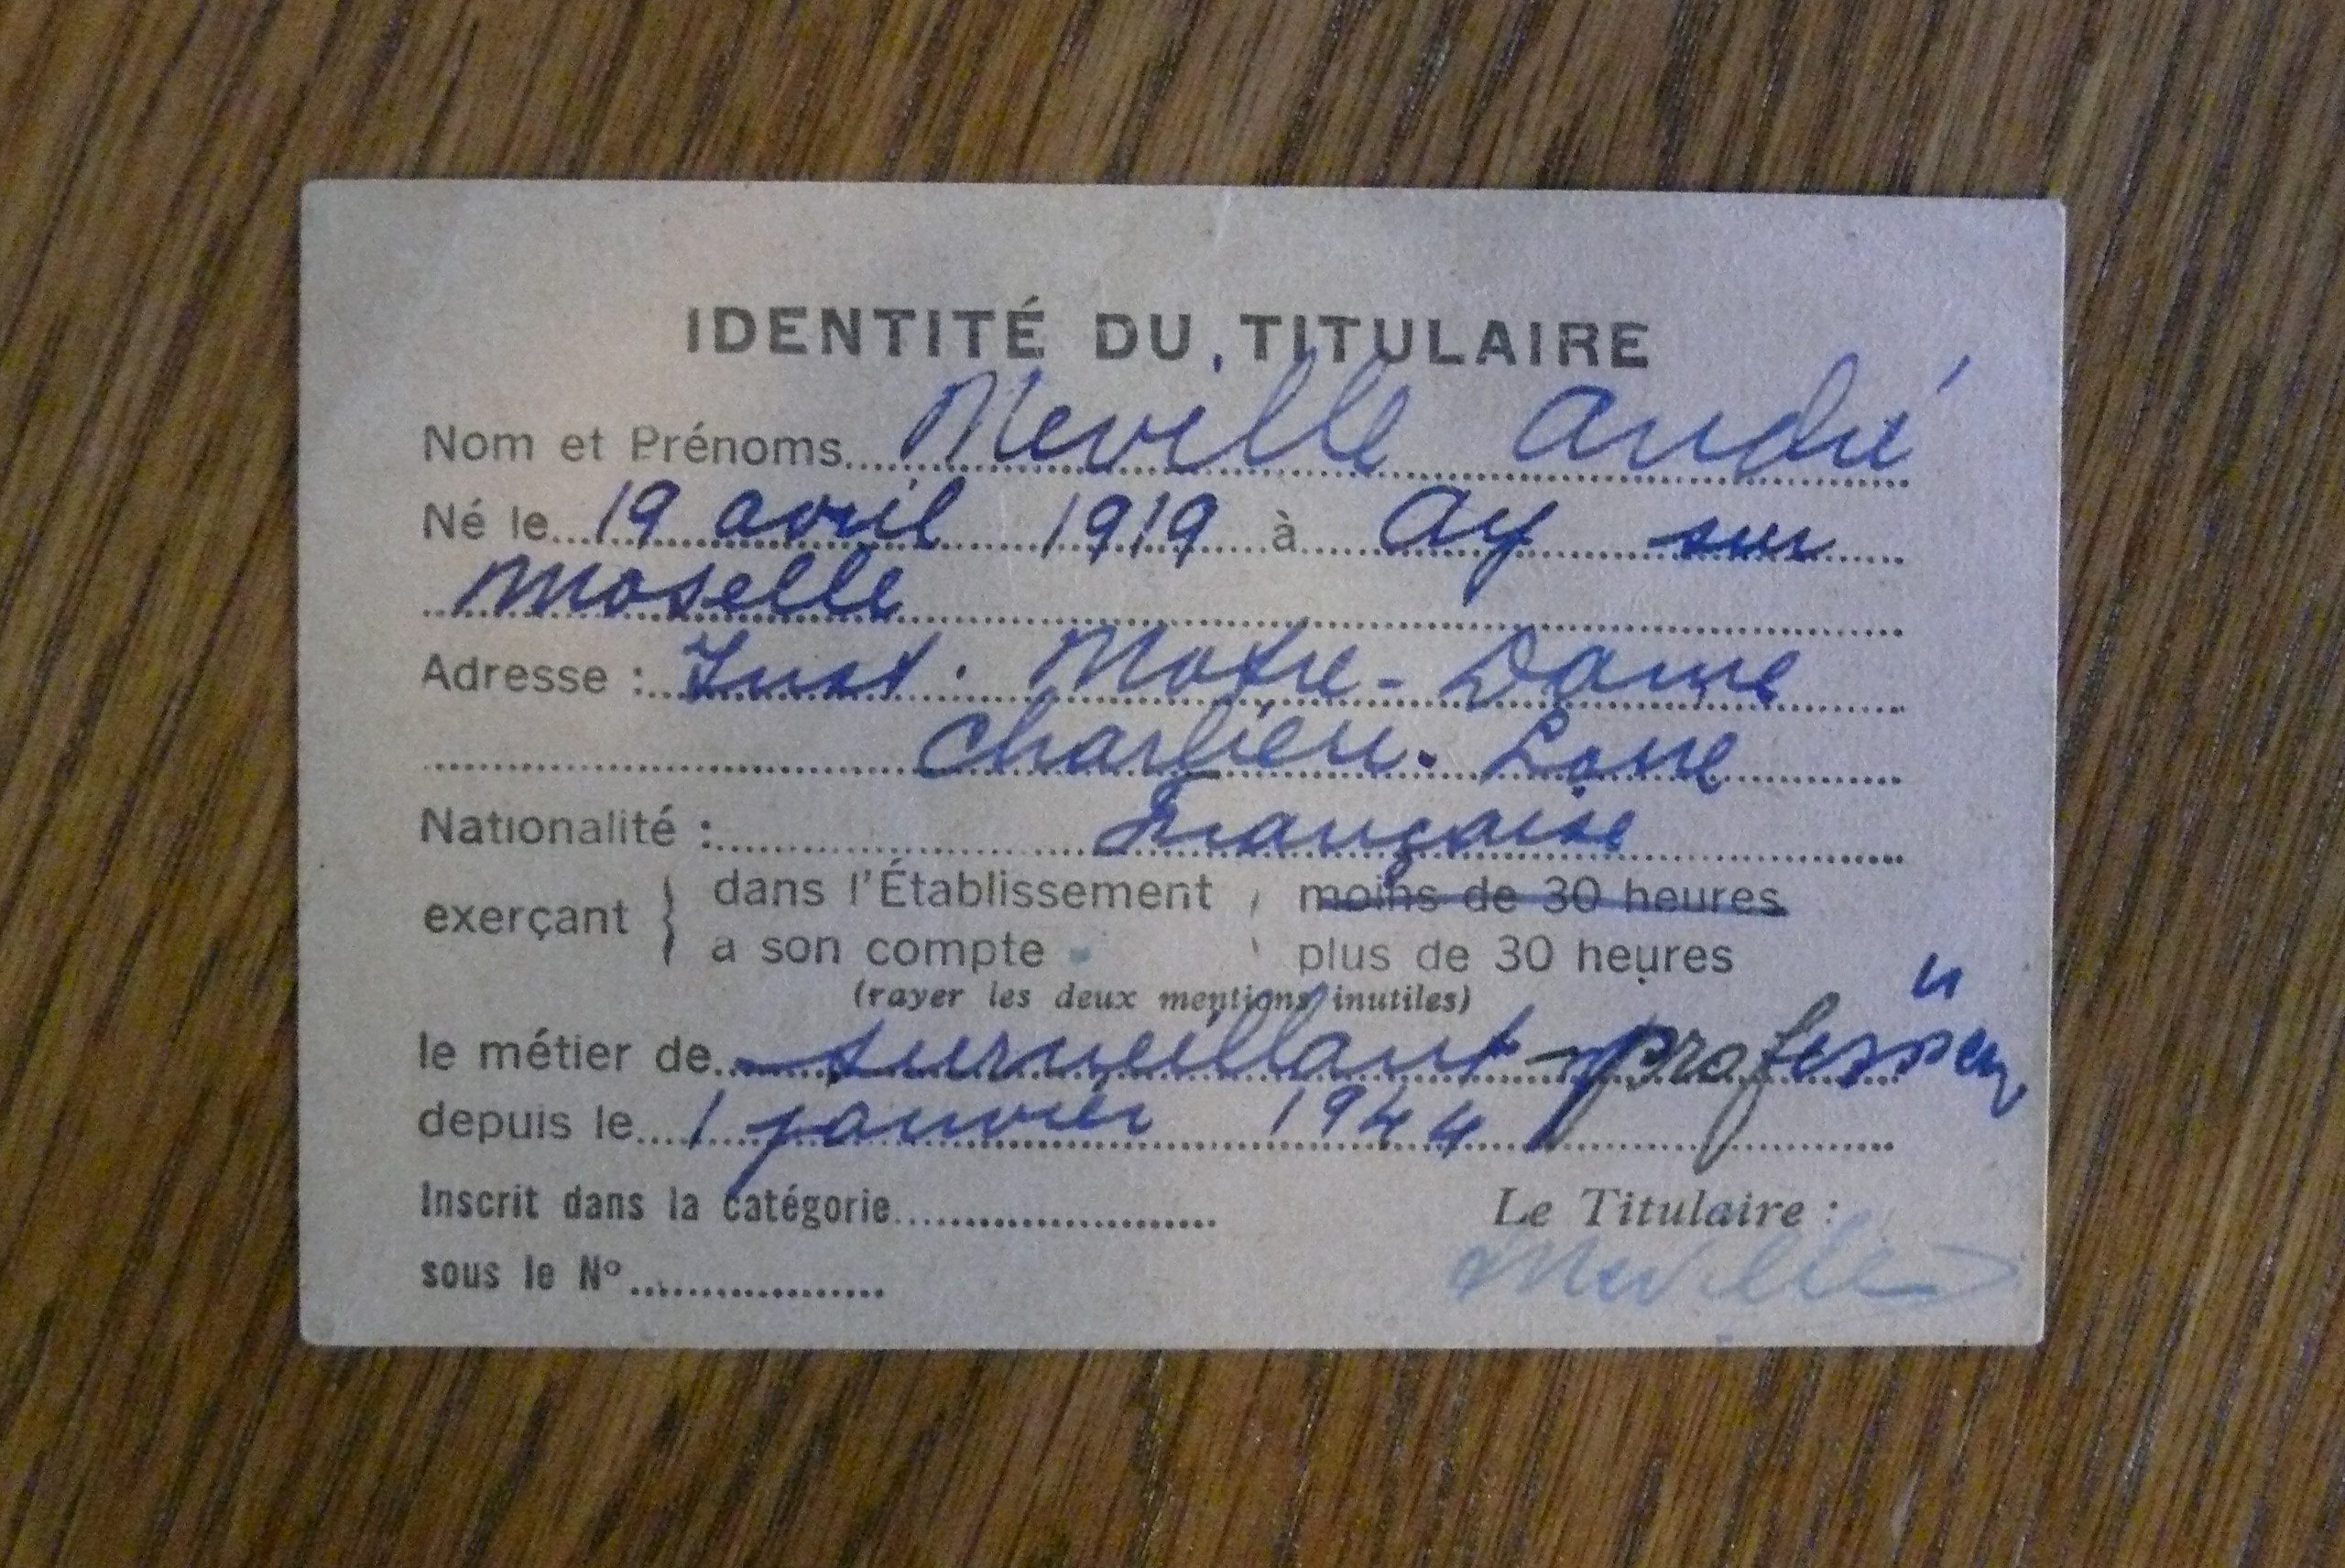 IDENTITÉ DU TITULAIRE
Nom et Prénoms Neville André
Né le 19 avril 1919 à Ay sur
Moselle
Adresse : Inst. Notre-Dame
Charlieu. Loire
Nationalité : Française
exerçant { dans l'Établissement moins de 30 heures
a son compte plus de 30 heures
(rayer les deux mentions inutiles)
le métier de surveillant - professeur
depuis le 1 janvier 1944
Inscrit dans la catégorie
Le Titulaire :
sous le Nº
Neville